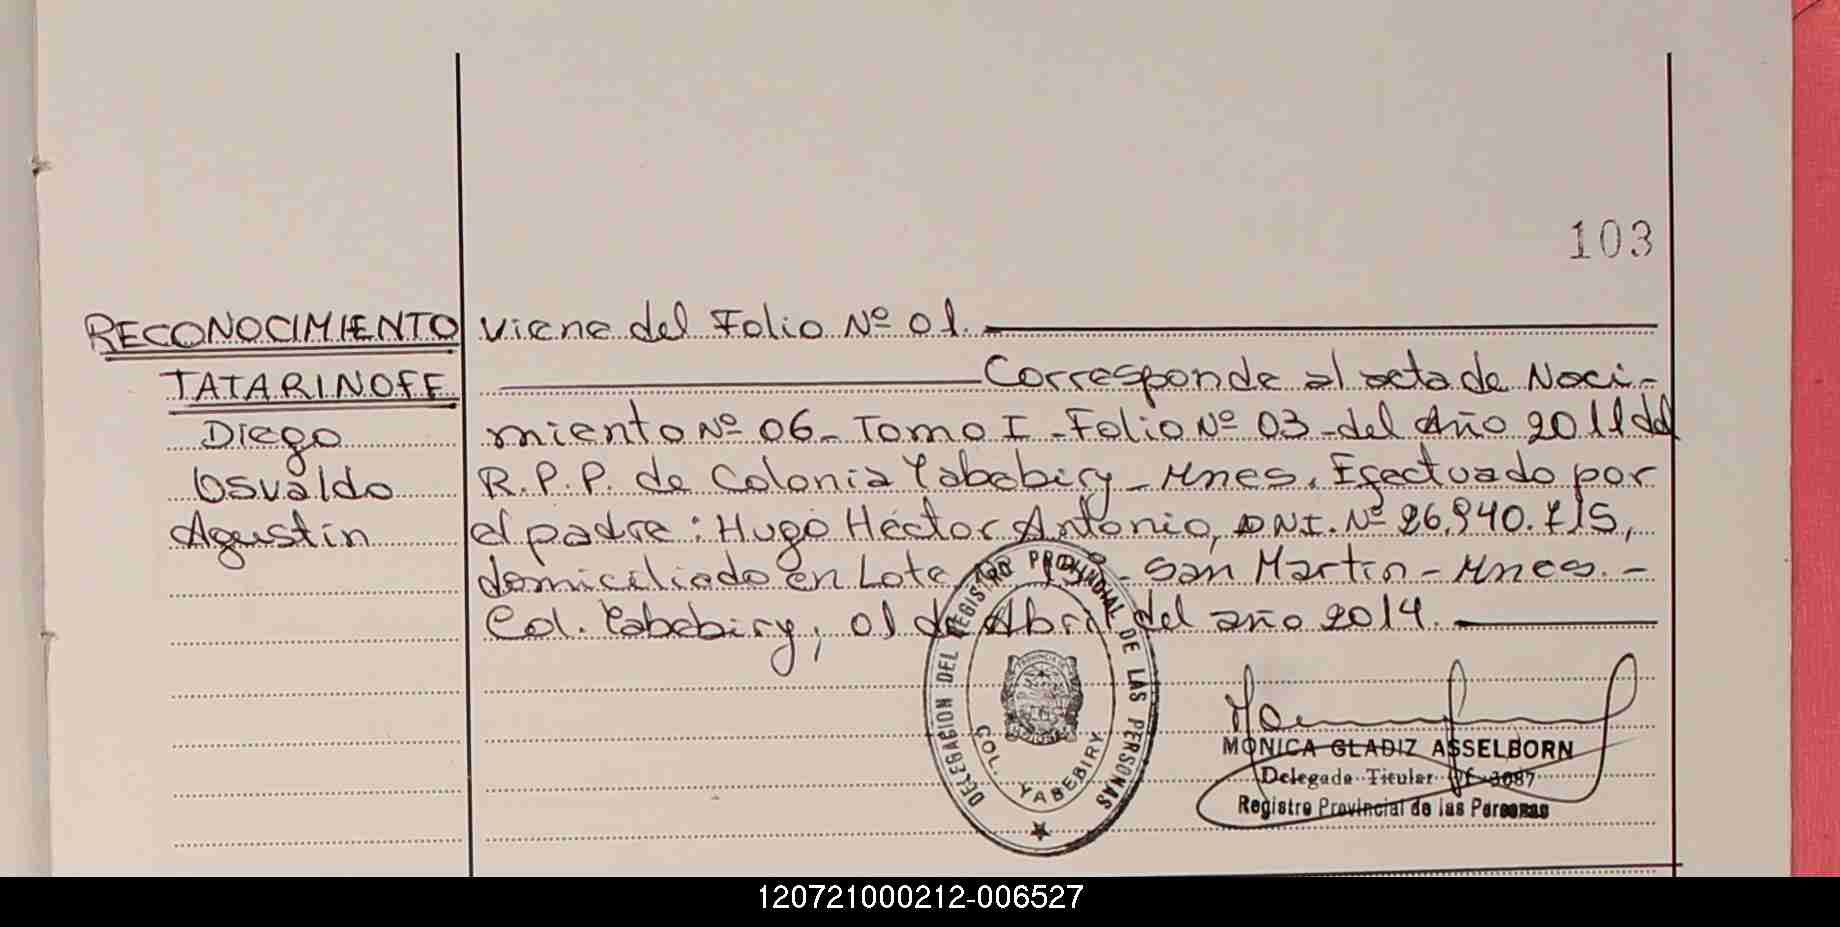 103
RECONOCIMIENTO Viene del Folio Nº 01.
TATARINOFF Corresponde al acta de Naci-
Diego miento Nº 06 - Tomo I - Folio Nº 03 - del Año 2011 del
Osvaldo R.P.P. de Colonia Yabebiry - Mnes. Efectuado por
Agustín el padre: Hugo Héctor Antonio, DNI. Nº 26.940.715,
domiciliado en Lote - San Martín - Mnes. -
Col. Yabebiry, 01 de Abril del año 2014.
DELEGACION DEL REGISTRO PROVINCIAL DE LAS PERSONAS
COL. YABEBIRY
MONICA GLADIZ ASSELBORN
Delegada Titular 1087
Registro Provincial de las Personas
120721000212-006527